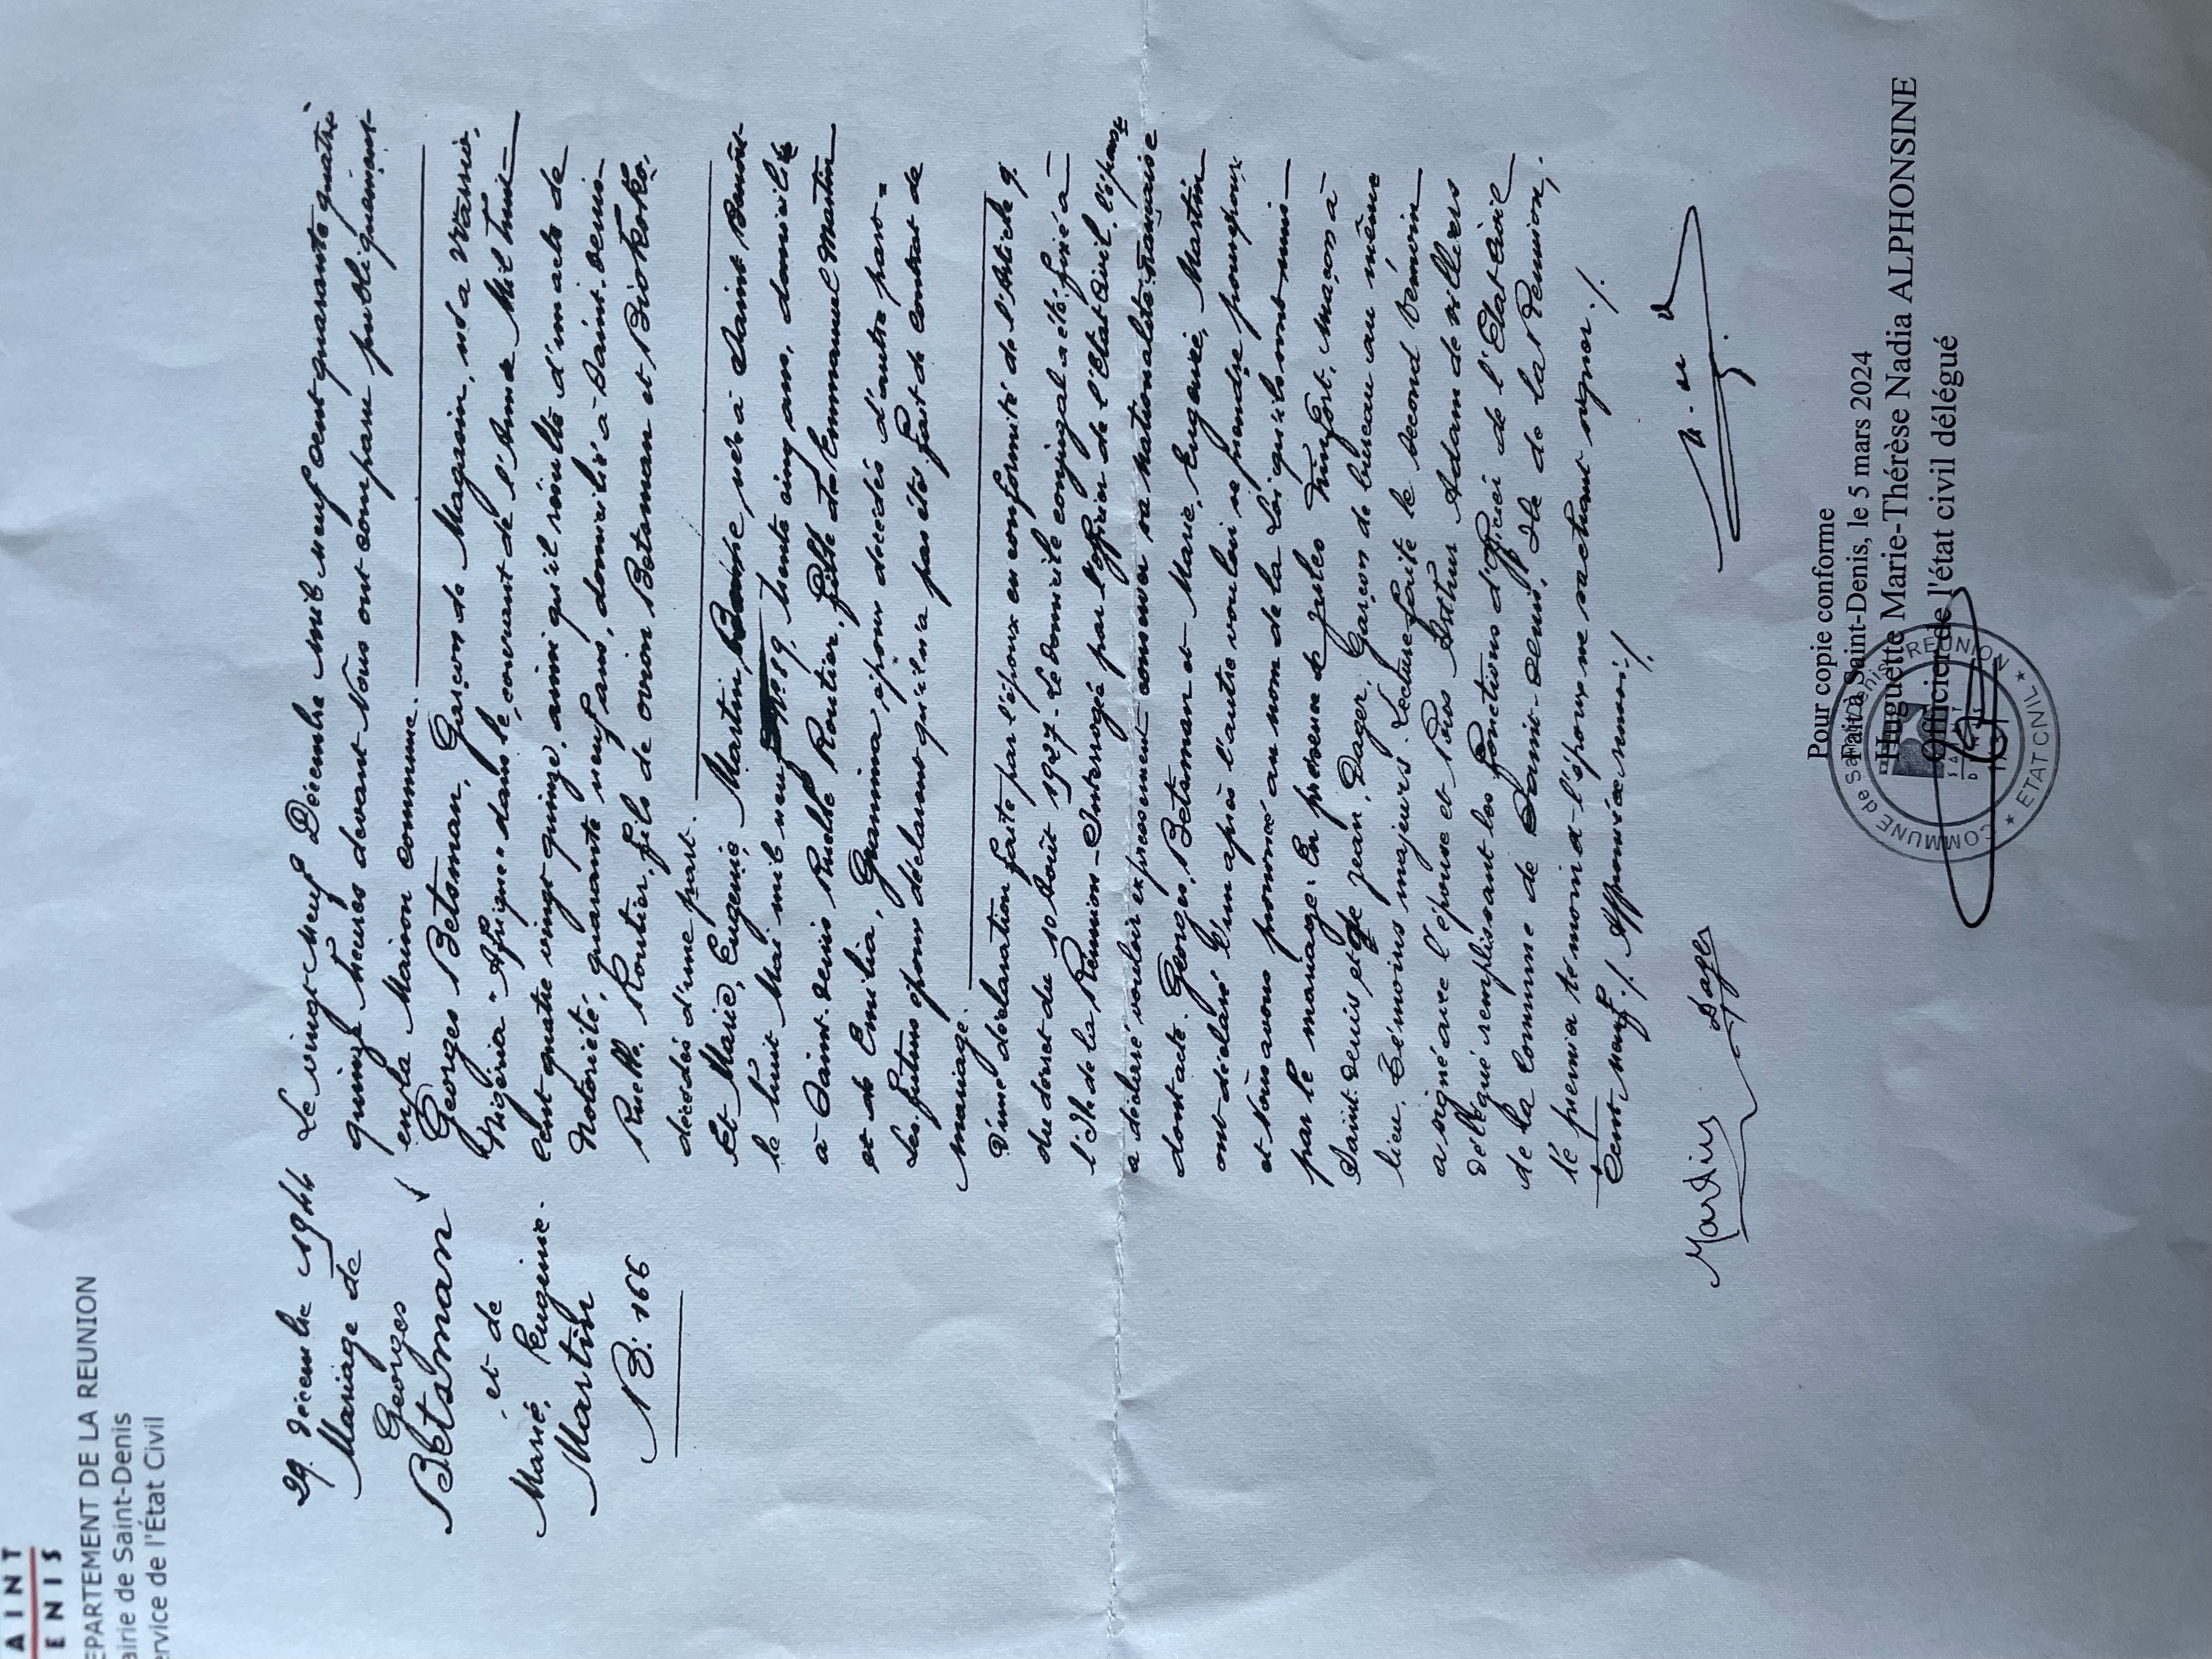 AINT
ENIS
EPARTEMENT DE LA REUNION
airie de Saint-Denis
ervice de l'État Civil
29. Décembre 1944
Mariage de
Georges
Betsman
et de
Marie, Eugénie
Martin
N: 166
Le vingt neuf Décembre mil neuf cent quarante quatre
quinze heures devant Nous ont comparu publiquement
en la Maison commune.
Georges Betsman, Garçon de Magasin, né à Warrio,
Nigéria "Afrique" dans le courant de l'Année Mil huit
cent quatre vingt quinze, ainsi qu'il résulte d'un acte de
Notoriété, quarante neuf ans, domicilié à Saint-Denis
Ruelle Routier, fils de Ovion Betsman et Biokoko,
décédés d'une part.
Et Marie, Eugénie, Martin, née à Saint Benoît
le huit Mai mil neuf No 89, trente cinq ans, domiciliée
à Saint-Denis Ruelle Routier, fille de Emmanuel Martin
et de Emilia, Gramina époux décédés d'autre part =
Les futurs époux déclarent qu'il n'a pas été fait de contrat de
mariage.
D'une déclaration faite par l'époux en conformité de l'Article 9.
du décret du 10 Août 1927 - Le Domicile conjugal a été fixé à
l'Ile de la Réunion - Interrogée par l'officier de l'Etat Civil, l'épouse
a déclaré vouloir expressement conserver sa nationalité française
dont acte. Georges, Betsman et Marie, Eugénie, Martin
ont déclaré l'un après l'autre vouloir se prendre pour époux
et Nous avons prononcé au nom de la Loi qu'ils sont unis
par le mariage. En présence de Jules, Maçon à
Saint-Denis et de Jean, Dager, Garçon de bureau au même
lieu, Témoins majeurs. Lecture faite le second témoin
a signé avec l'épouse et Nous Arthur Adam de Villiers
Délégué remplissant les fonctions d'Officier de l'Etat Civil
de la Commune de Saint-Denis, Ile de la Réunion,
le premier témoin et l'époux ne sachant signer. /.
Cent neuf. /. Approuvé ce renvoi. /.
Martin
Dager
A. de V
Pour copie conforme
Fait à Saint-Denis, le 5 mars 2024
Huguette Marie-Thérèse Nadia ALPHONSINE
Officier de l'état civil délégué
COMMUNE de Saint-Denis REUNION
SAINT
DENIS
★ ETAT CIVIL ★